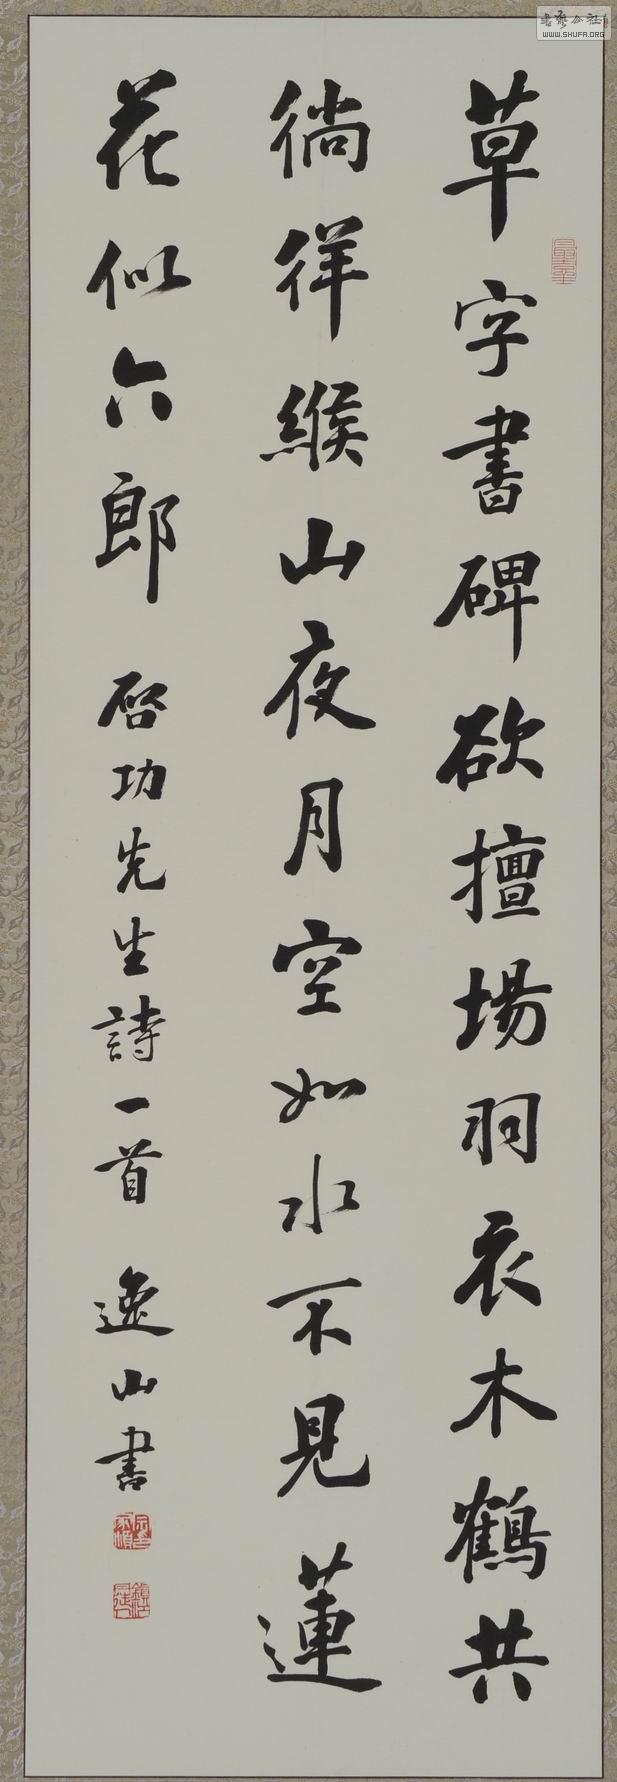 草字書碑欲擅場羽衣木鶴共
徜徉緱山夜月空如水不見蓮
花似六郎
啓功先生詩一首 逸山書
書藝公社
WWW.SHUFA.ORG